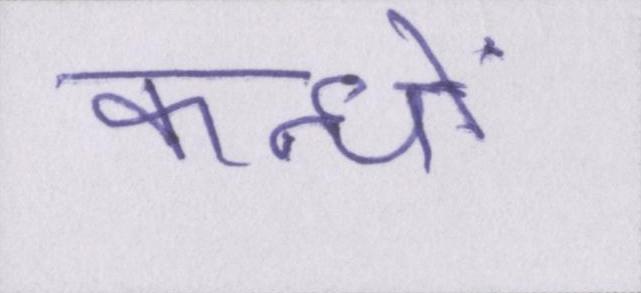 कन्धों